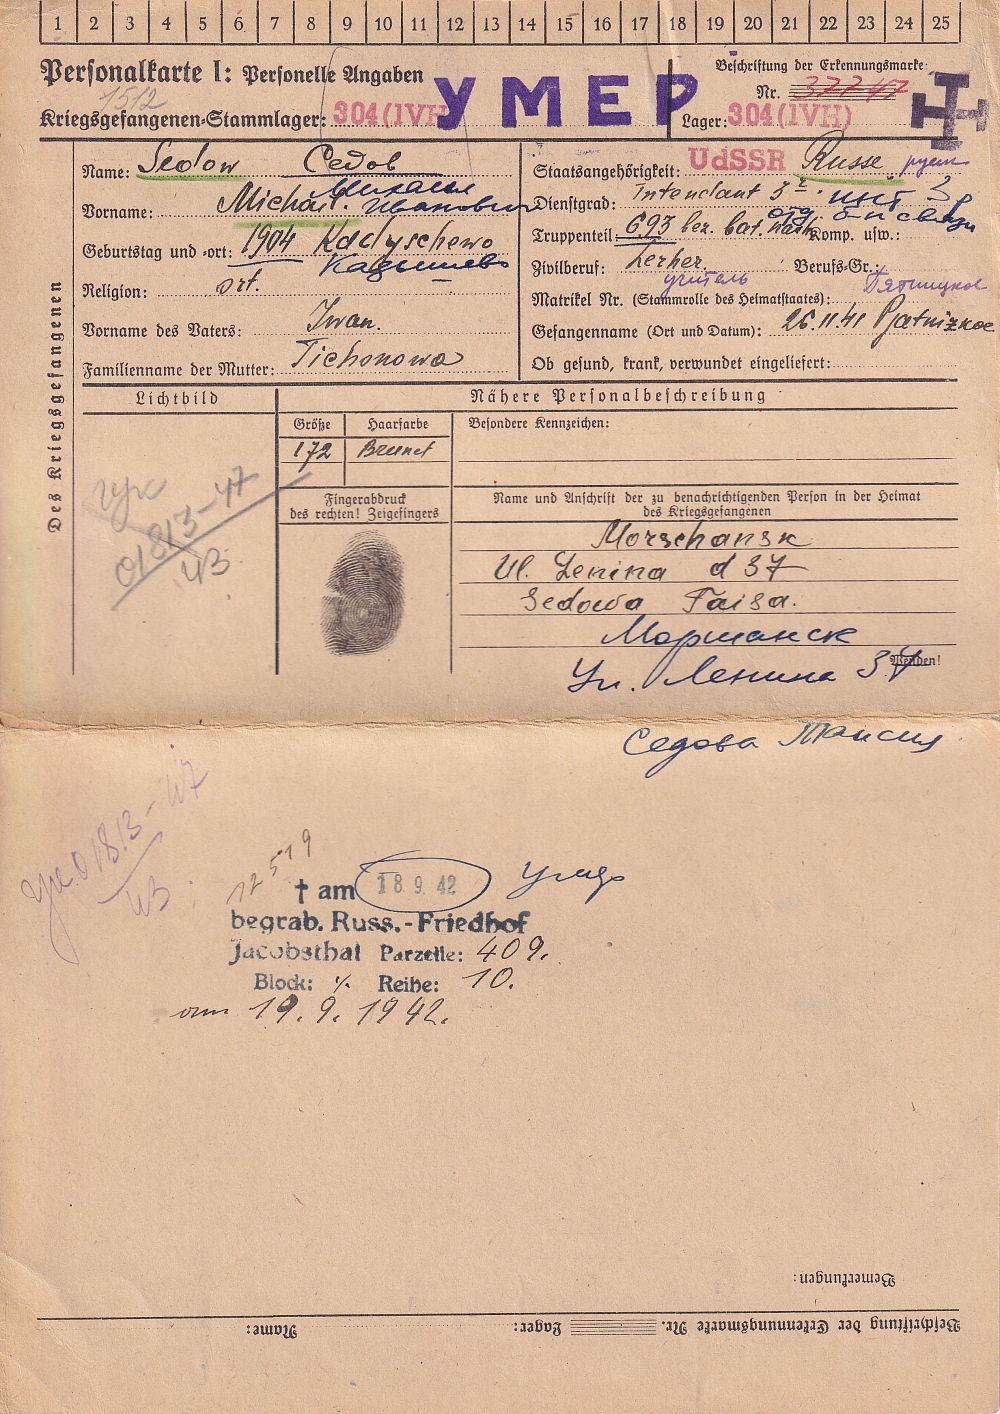 1 2 3 4 5 6 7 8 9 10 11 12 13 14 15 16 17 18 19 20 21 22 23 24 25
Personalkarte I: Personelle Angaben
1512
Kriegsgefangenen-Stammlager: 304 (IV H)
УМЕР
Beschriftung der Erkennungsmarke:
Nr. 37747
Lager: 304 (IV H)
Des Kriegsgefangenen
Name: Sedow Седов
Vorname: Michail. Михаил Иванович
Geburtstag und -ort: 1904 Kadyschewo
Кадышево
Religion: ort.
Vorname des Vaters: Iwan.
Familienname der Mutter: Tichonowa
Staatsangehörigkeit: UdSSR Russe русск
Dienstgrad: Intendant 3 инт 3
Truppenteil: 693 bez. bat. Komp. usw.:
отд б-н связи
Zivilberuf: Lerher. Berufs-Gr.:
учитель
Matrikel Nr. (Stammrolle des Heimatstaates):
Пятницкое
Gefangenname (Ort und Datum): 26.11.41 Pjatnizkoe
Ob gesund, krank, verwundet eingeliefert:
Lichtbild
Nähere Personalbeschreibung
Größe Haarfarbe Besondere Kennzeichen:
172 Brunet
Fingerabdruck
des rechten! Zeigefingers
Name und Anschrift der zu benachrichtigenden Person in der Heimat
des Kriegsgefangenen
01813-47
43
Morschansk
Ul. Lenina d 37
Sedowa Taisa.
Моршанск
Ул. Ленина 37
Wenden!
Седова Таисия
01813-47
43
12519
† am 18. 9. 42 умер
begrab. Russ.-Friedhof
Jacobsthal Parzelle: 409.
Block: ./. Reihe: 10.
am 19. 9. 1942.
Bemerkungen:
Beschriftung der Erkennungsmarke Nr. Lager: Name: